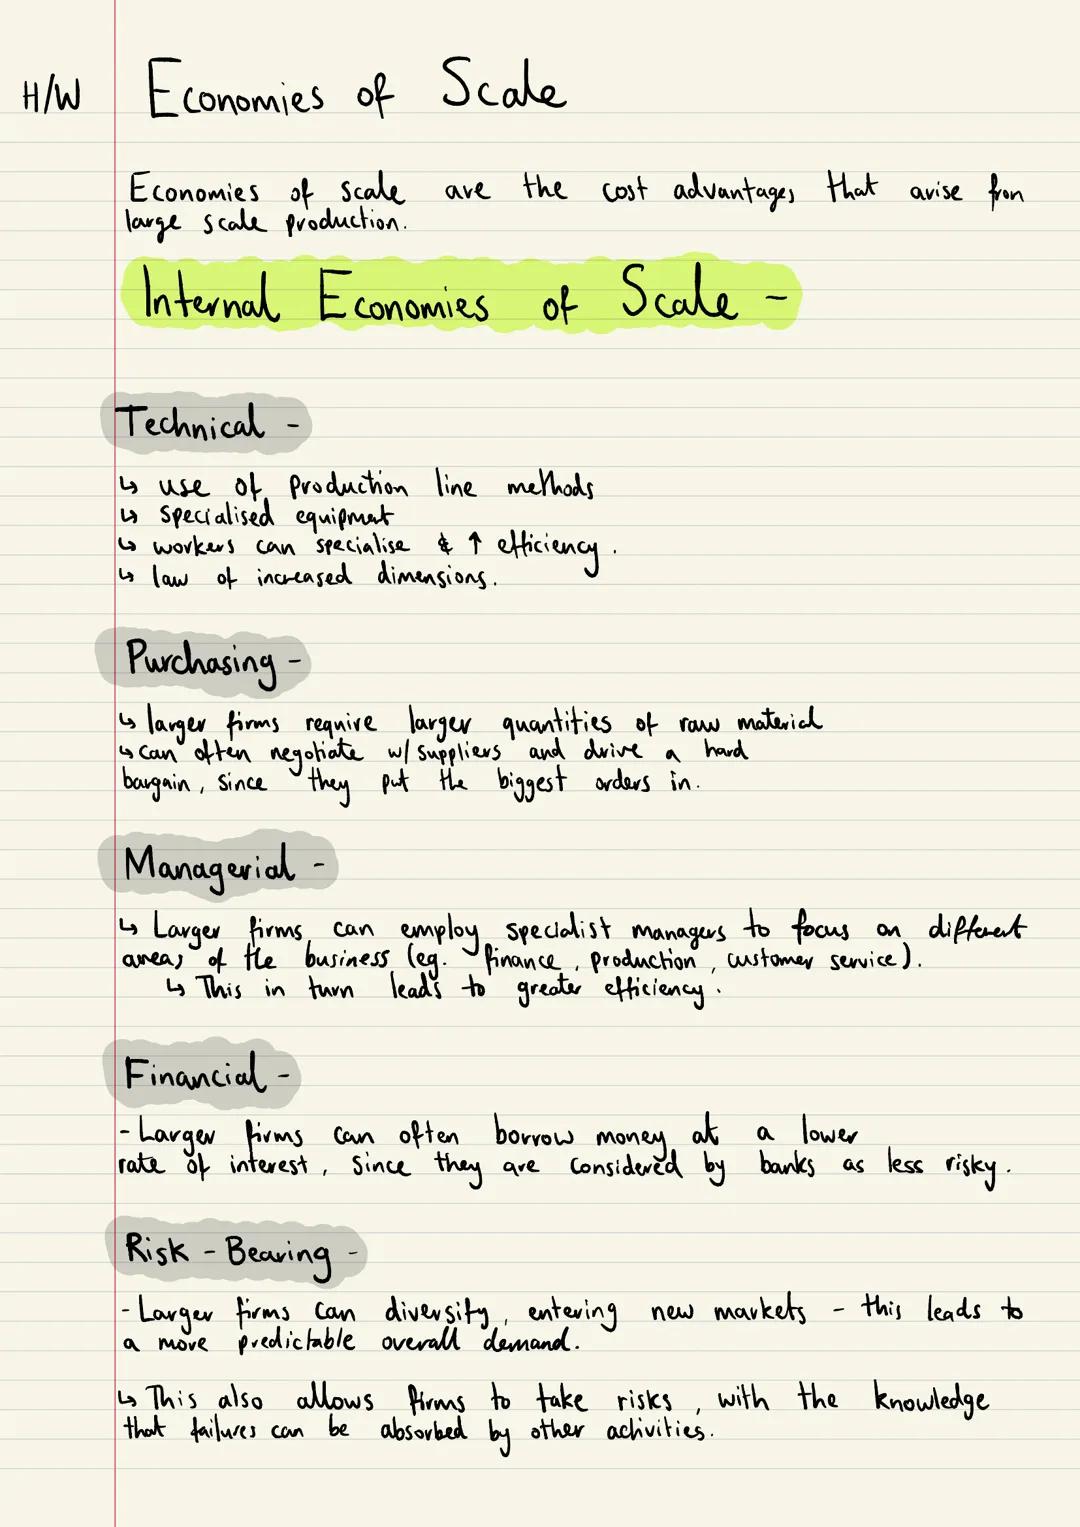 H/W Economies of Scale
Economies of scale are the cost advantages that arise from
large scale production.
Internal Economies of Scale -
Technical -
↳ use of production line methods
↳ specialised equipment
↳ workers can specialise & ↑ efficiency.
↳ law of increased dimensions.
Purchasing -
↳ larger firms require larger quantities of raw material
↳ can often negotiate w/ suppliers and drive a hard
bargain, since they put the biggest orders in.
Managerial -
↳ Larger firms can employ specialist managers to focus on different
areas of the business (eg. finance, production, customer service).
↳ This in turn leads to greater efficiency.
Financial -
- Larger firms can often borrow money at a lower
rate of interest, since they are considered by banks as less risky.
Risk - Bearing -
- Larger firms can diversify, entering new markets - this leads to
a more predictable overall demand.
↳ This also allows firms to take risks, with the knowledge
that failures can be absorbed by other activities.